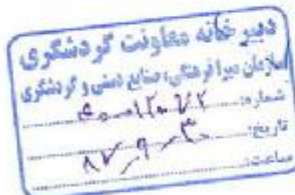 دبیرخانه معاونت گردشگری
سازمان میراث فرهنگی، صنایع دستی و گردشگری
شماره:
تاریخ: ۸۷٫۹٫۳۰
ساعت: